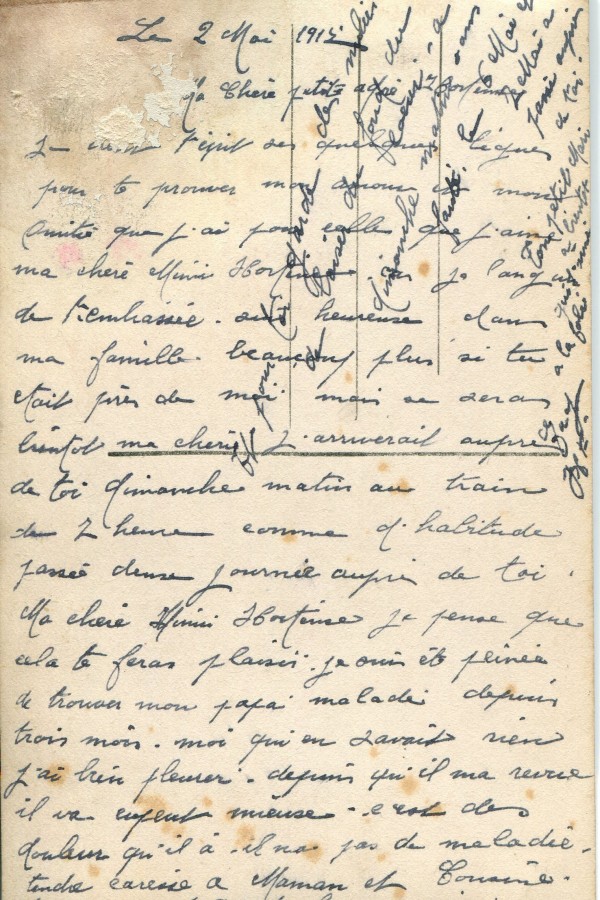 Le 2 Mai 1915
Ma Cheré petite adoré Hortense
Je t'ecrit ses quelques lignes
pour te prouver mon amour et mon
Amitié que j'ai pour celle que j'aime
ma cheré Mimi Hortense je langui
de t'embrassée. suis heureuse dans
ma famille. beaucoup plus si tu
etait près de moi. mais se seras
bientot ma cherie j'arriverait aupres
de toi dimanche matin au train
de 7 heure comme d'habitude
passée deuse journée aupré de toi.
Ma cheré Mimi Hortense je pense que
cela te feras plaisir. je suis été peinée
de trouver mon papa maladé depuis
trois mois. moi qui en savait rien
j'ai bien pleurer. depuis qu'il ma revue
il va mieuse. c'est des
douleur qu'il à. il na pas de maladie.
tendre caresse a Maman et Cousine.
garde des milier
de baiser du fond du
coeur. a
dimanche matin sans
faute. le 8 Mai et
9 Mai a
passé aupré
de toi.
Ton petit Mari
qui t'aime
a la folie